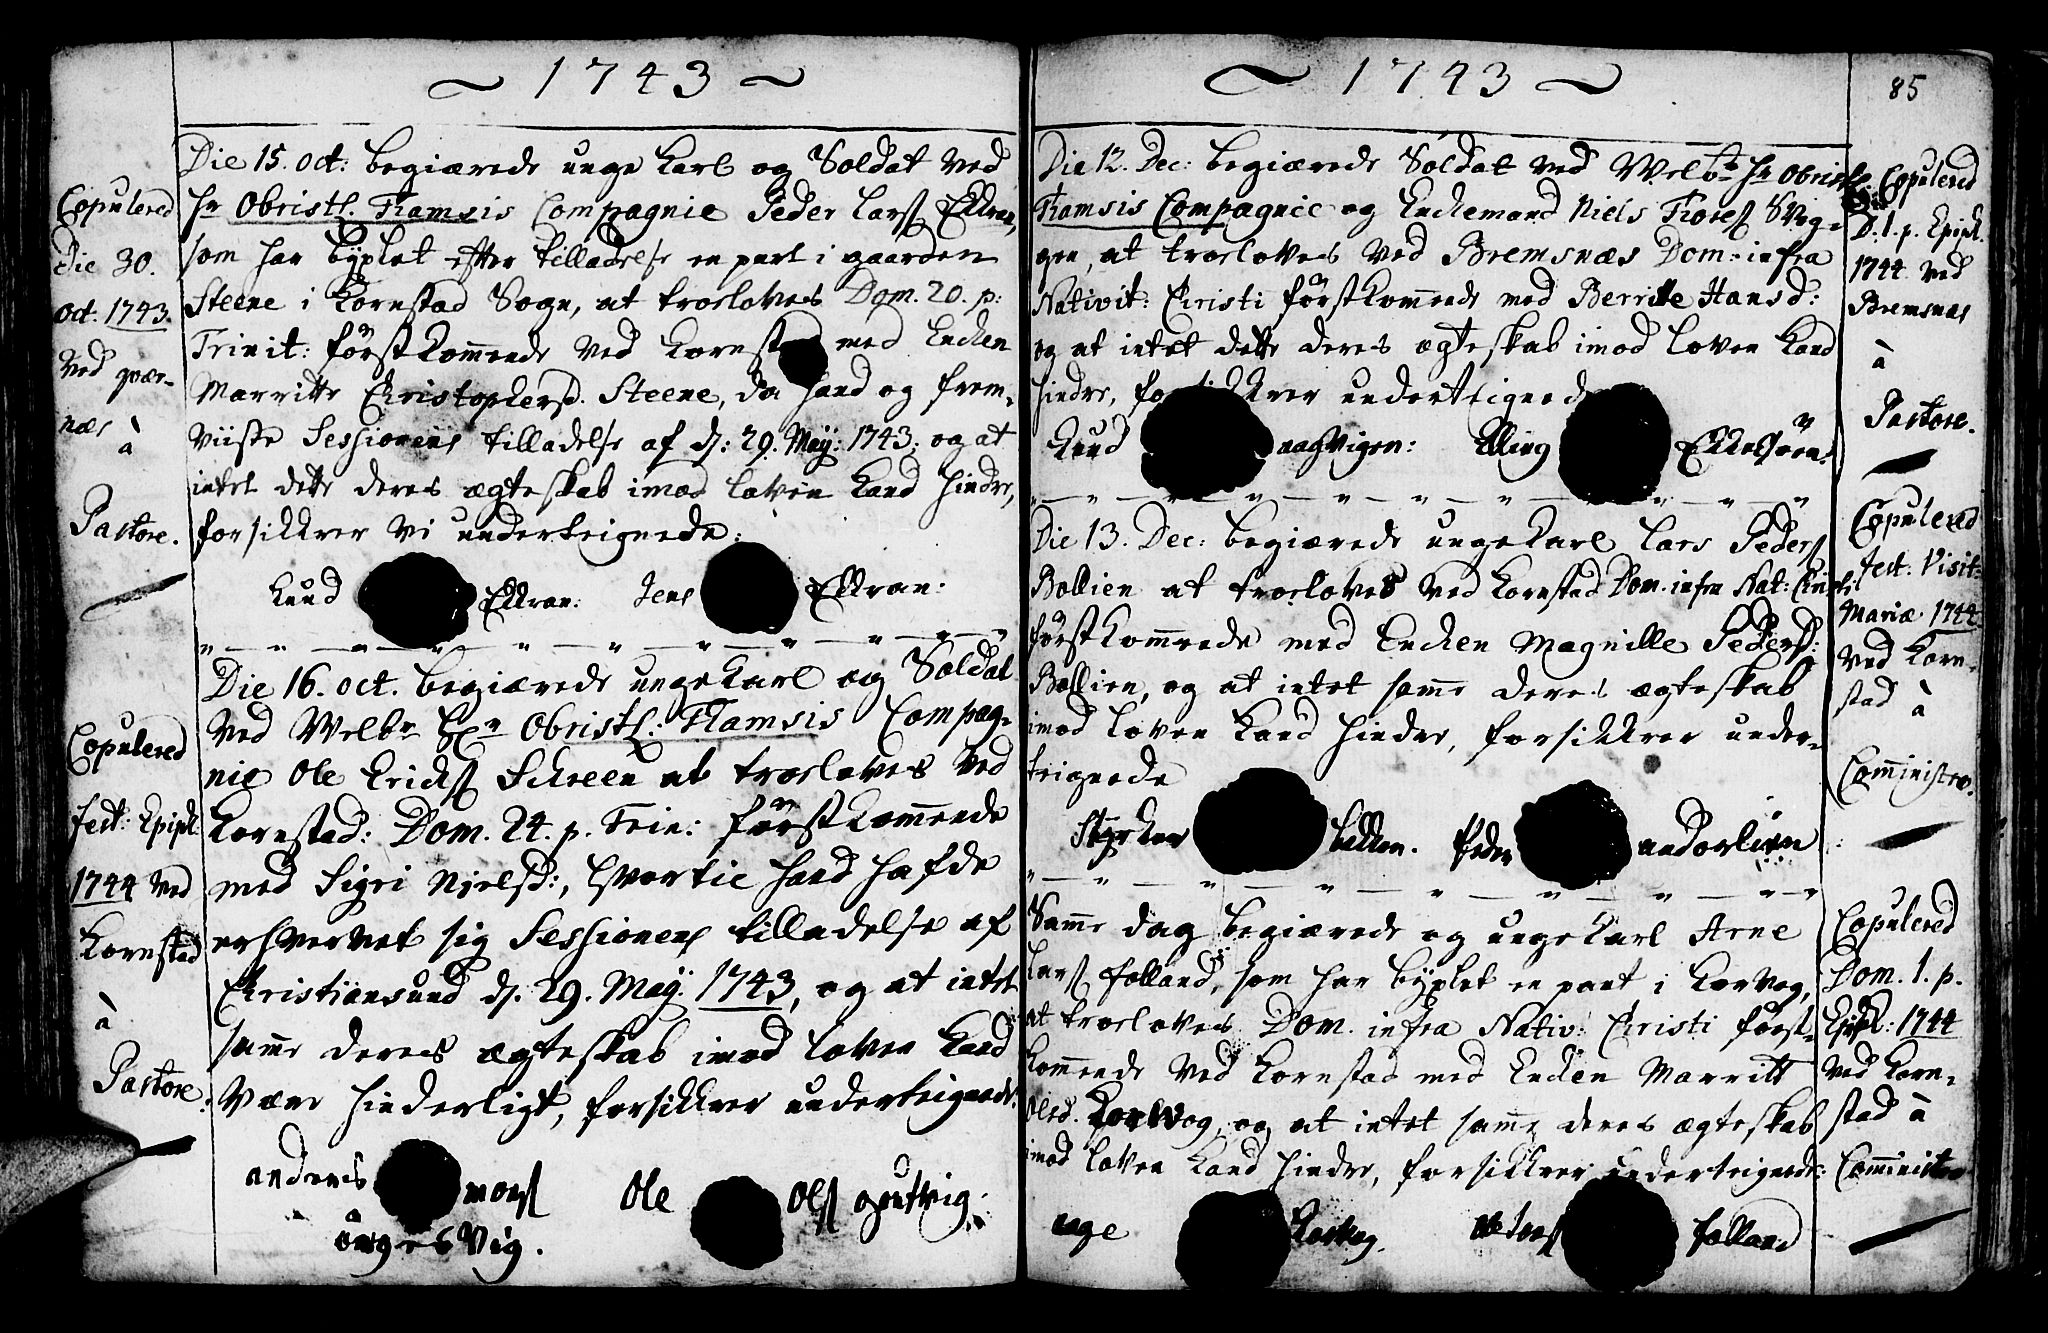 ~ 1743 ~
Copulered
die 30.
Oct. 1743.
ved qvær-
næs
à
Pastore.
Die 15. Oct: begiærede unge Karl og Soldat ved
Hr Obristl. Framsis Compagnie Peder Larsß Ekkran,
som har byxlet efter tilladelse en part i gaarden
Steene i Kornstad Sogn, at troeloves Dom. 20. p:
Trinit: førstkommende ved Kornst med Enchen
Marritte Christophersd. Steene, da hand og frem-
viiste Sessionens tilladelse af d: 29. May: 1743; og at
intet dette deres ægteskab imod Loven kand hindre,
forsikkrer vi underteignede:
Knud Ekkran: Jens Ekkran:
Copulered
fest: Epiph.
1744 ved
Kornstad
à
Pastore:
Die 16. Oct. begiærede unge Karl og Soldat
ved Welbr Hr Obristl. Framsis Compag-
nie Ole Ericksß Schreen at troeloves ved
Kornstad: Dom. 24. p. Trin: førstkommende
med Sigri Nielsd:, hvortil hand hafde
erhvervet sig Sessionens tilladelse af
Christiansund d. 29. May. 1743, og at intet
samme deres ægteskab imod Loven kand
være hinderligt, forsikkrer underteignede:
anders monsß Ole Olsß
~ 1743 ~
85
Die 12. Dec: begiærede Soldat ved Welbr Hr Obristl.
Framsis Compagnie og Enckemand Niels Toresß Svey-
gen, at troeloves ved Bremsnæs Dom: infra
Nativit: Christi førstkommende med Berritte Hansd:
og at intet dette deres ægteskab imod Loven kand
hindre, fo kkrer underteigned
Knud aagvigen: Elling
Copulered
D. 1. p. Epiph.
1744 ved
Bremsnæs
à
Pastore.
Die 13. Dec: begiærede unge Karl Lars Pedersß
Bollien at troeloves ved Kornstad Dom. infra Nat: Christi
førstkommende med Enchen Magnille Pedersd:
Bollien, og at intet samme deres ægteskab
imod Loven kand hindre, forsikkrer under-
teignede
Peder
Copulered
fest. Visit:
Mariæ. 1744
ved Korn-
stad à
Comministro.
Samme dag begiærede og unge Karl Arne
Larsß Folland, som har byxlet en part i Korvog,
at troeloves Dom. infra Nativ: Christi først-
kommende ved Kornstad med Enchen Marritt
Olsd. Korvog, og at intet samme deres ægteskab
imod Loven kand hindre, forsikkrer underteignede:
aage Korvog. Folland
Copulered
Dom. 1. p.
Epiph: 1744
ved Korn-
stad à
Comministro